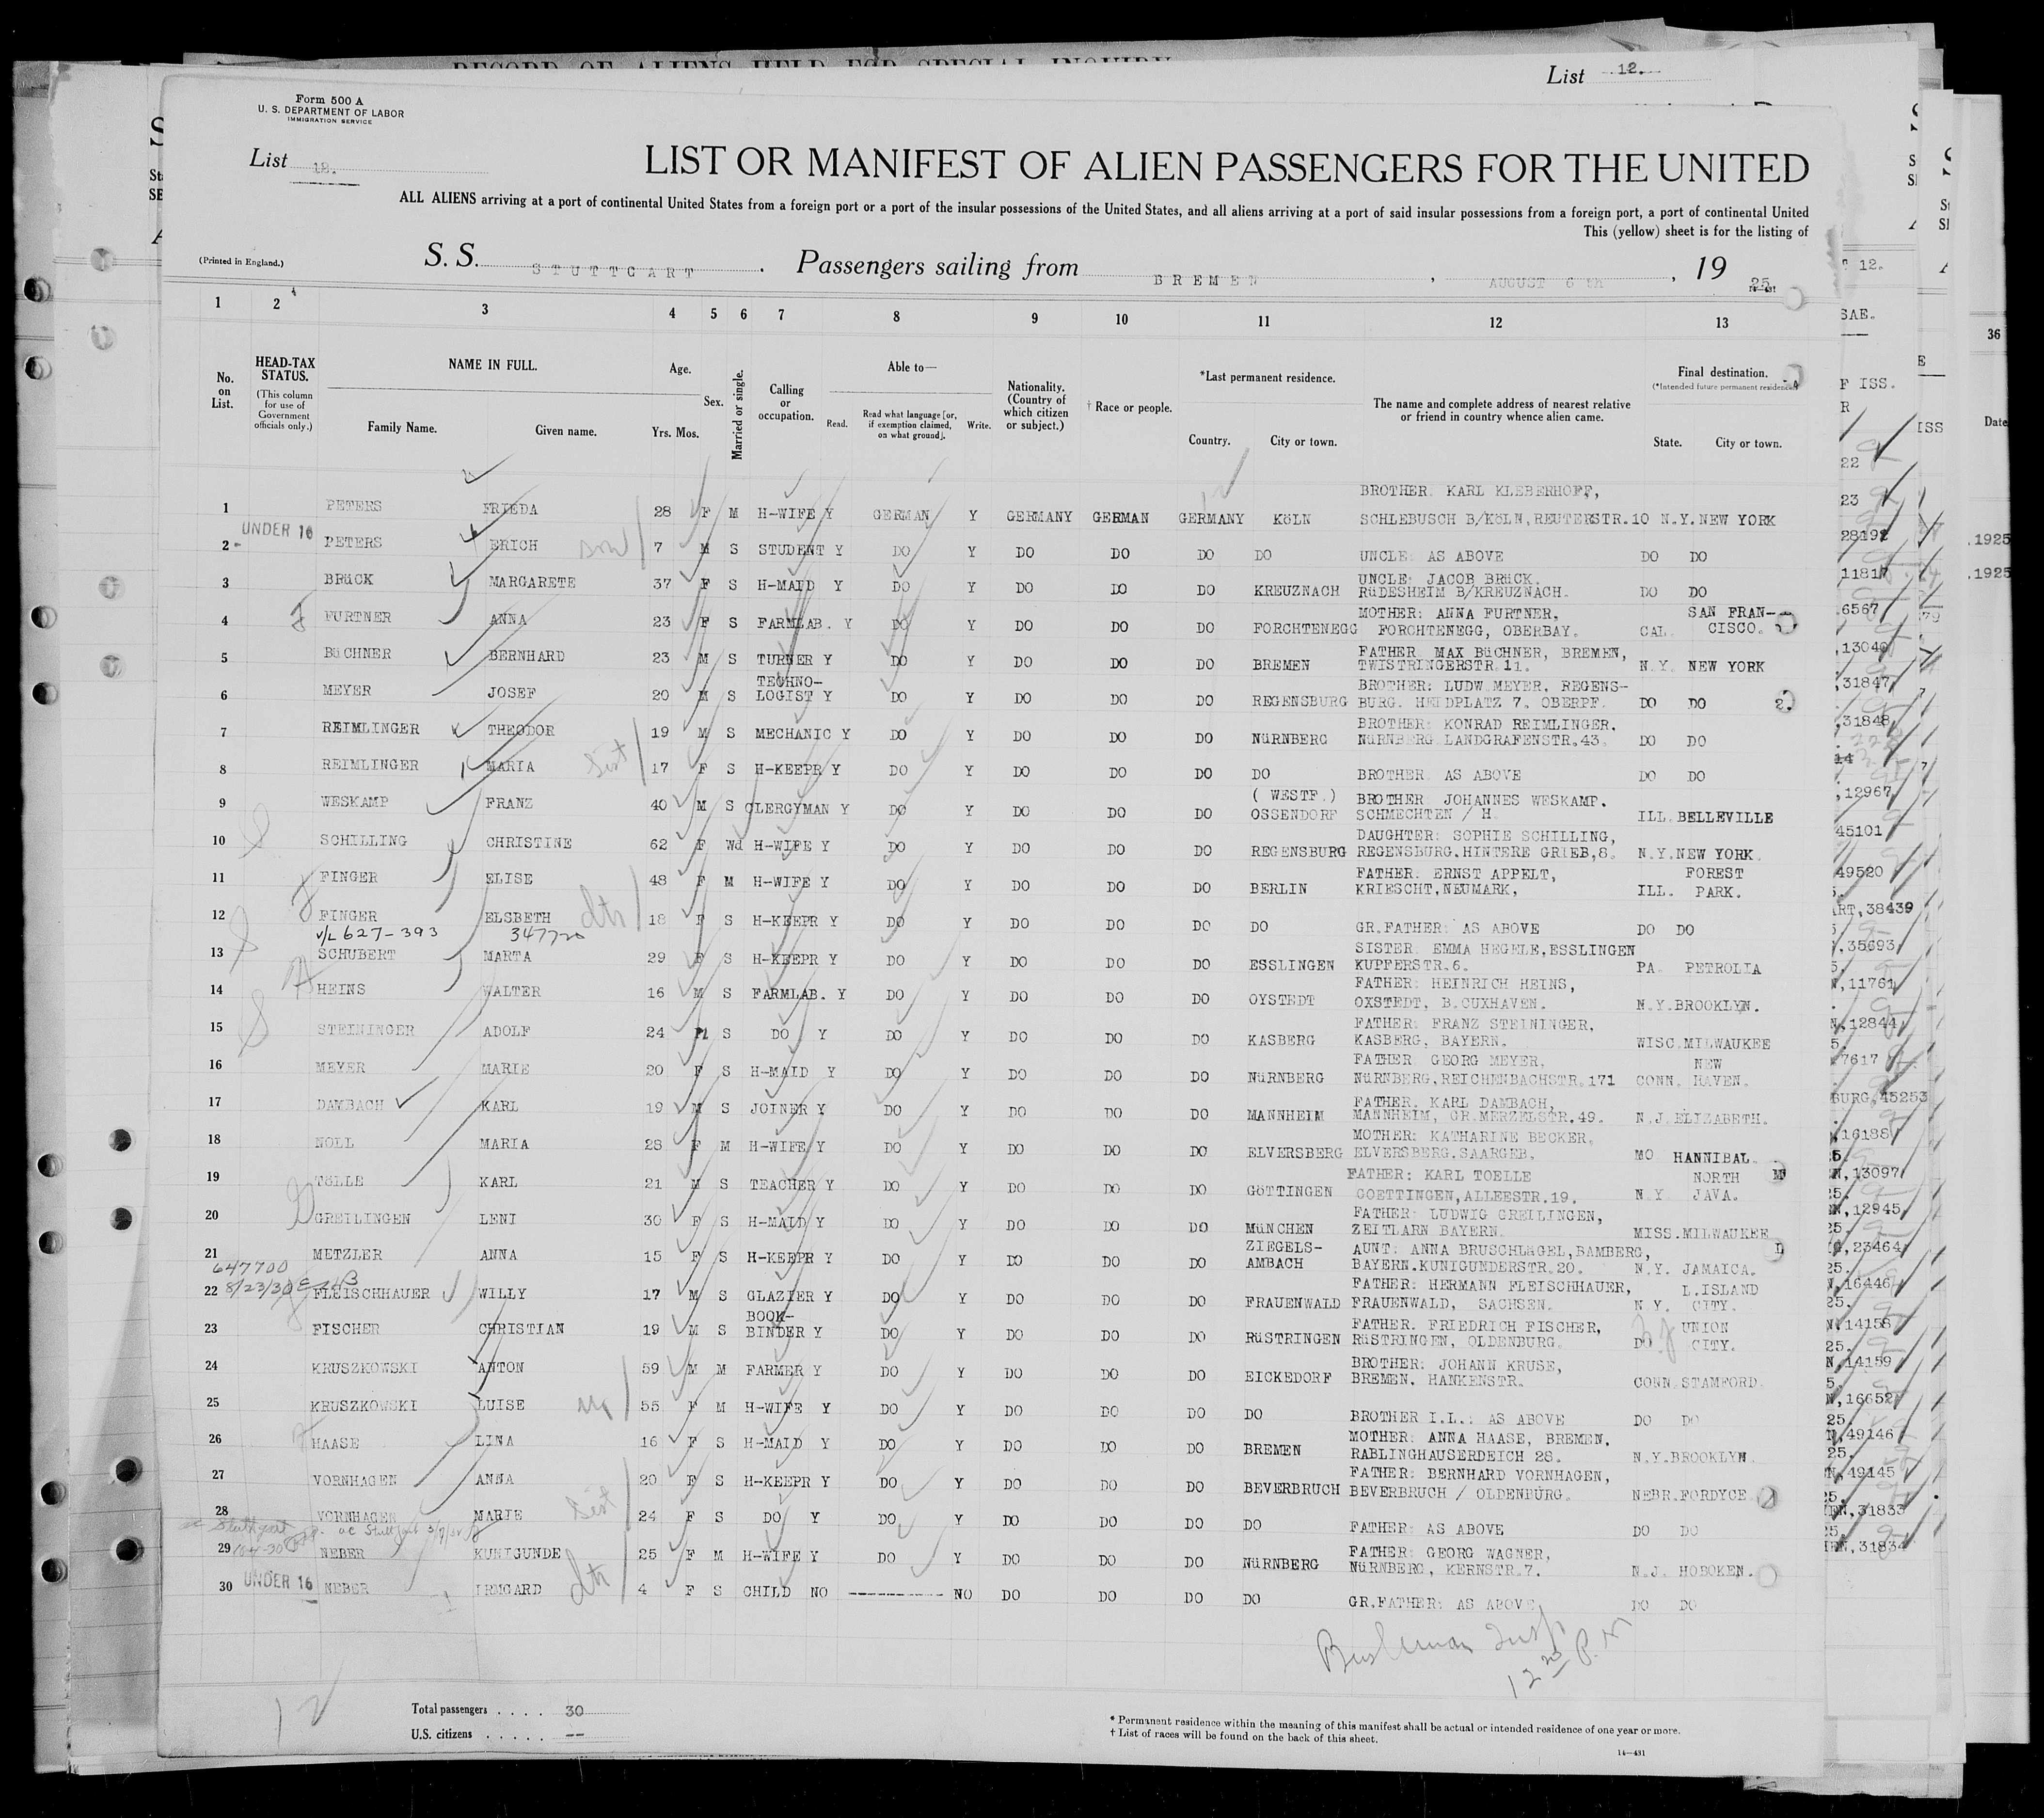 RECORD OF ALIENS HELD FOR SPECIAL INQUIRY
List 12.
Form 500 A
U. S. DEPARTMENT OF LABOR
IMMIGRATION SERVICE
List 18.
LIST OR MANIFEST OF ALIEN PASSENGERS FOR THE UNITED
ALL ALIENS arriving at a port of continental United States from a foreign port or a port of the insular possessions of the United States, and all aliens arriving at a port of said insular possessions from a foreign port, a port of continental United
This (yellow) sheet is for the listing of
(Printed in England.)
S. S. STUTTGART. Passengers sailing from BREMEN, AUGUST 6 th, 19 25.
1 2 3 4 5 6 7 8 9 10 11 12 13
No. on List.
HEAD-TAX STATUS.
(This column for use of Government officials only.)
NAME IN FULL.
Family Name. Given name.
Age.
Yrs. Mos.
Sex.
Married or single.
Calling or occupation.
Able to—
Read. Read what language [or, if exemption claimed, on what ground]. Write.
Nationality. (Country of which citizen or subject.)
† Race or people.
*Last permanent residence.
Country. City or town.
The name and complete address of nearest relative or friend in country whence alien came.
Final destination.
(*Intended future permanent residence)
State. City or town.
BROTHER: KARL KLEBERHOFF,
1 PETERS FRIEDA 28 F M H-WIFE Y GERMAN Y GERMANY GERMAN GERMANY KöLN SCHLEBUSCH B/KöLN, REUTERSTR.10 N.Y. NEW YORK
UNDER 16
2 PETERS ERICH son 7 M S STUDENT Y DO Y DO DO DO DO UNCLE: AS ABOVE DO DO
UNCLE: JACOB BRüCK.
3 BRüCK MARGARETE 37 F S H-MAID Y DO Y DO DO DO KREUZNACH RüDESHEIM B/KREUZNACH. DO DO
MOTHER: ANNA FURTNER, SAN FRAN-
4 FURTNER ANNA 23 F S FARMLAB. Y DO Y DO DO DO FORCHTENEGG FORCHTENEGG, OBERBAY. CAL. CISCO.
FATHER MAX BüCHNER, BREMEN,
5 BüCHNER BERNHARD 23 M S TURNER Y DO Y DO DO DO BREMEN TWISTRINGERSTR.11. N.Y. NEW YORK
TECHNO- BROTHER: LUDW.MEYER, REGENS-
6 MEYER JOSEF 20 M S LOGIST Y DO Y DO DO DO REGENSBURG BURG. HEIDPLATZ 7. OBERPF. DO DO
BROTHER: KONRAD REIMLINGER.
7 REIMLINGER THEODOR 19 M S MECHANIC Y DO Y DO DO DO NüRNBERG NüRNBERG LANDGRAFENSTR.43. DO DO
8 REIMLINGER MARIA Sist 17 F S H-KEEPR Y DO Y DO DO DO DO BROTHER: AS ABOVE DO DO
(WESTF.) BROTHER JOHANNES WESKAMP.
9 WESKAMP FRANZ 40 M S CLERGYMAN Y DO Y DO DO DO OSSENDORF SCHMECHTEN / H. ILL. BELLEVILLE
DAUGHTER: SOPHIE SCHILLING,
10 SCHILLING CHRISTINE 62 F Wd H-WIFE Y DO Y DO DO DO REGENSBURG REGENSBURG.HINTERE GRIEB,8. N.Y. NEW YORK.
FATHER. ERNST APPELT, FOREST
11 FINGER ELISE 48 F M H-WIFE Y DO Y DO DO DO BERLIN KRIESCHT, NEUMARK, ILL. PARK.
12 FINGER ELSBETH dtr 18 F S H-KEEPR Y DO Y DO DO DO DO GR.FATHER: AS ABOVE DO DO
V/L 627-393 347720
SISTER. EMMA HEGELE, ESSLINGEN
13 SCHUBERT MARTA 29 F S H-KEEPR Y DO Y DO DO DO ESSLINGEN KUPFERSTR.6. PA. PETROLIA
FATHER: HEINRICH HEINS,
14 HEINS WALTER 16 M S FARMLAB. Y DO Y DO DO DO OYSTEDT OXSTEDT, B.CUXHAVEN. N.Y. BROOKLYN.
FATHER: FRANZ STEININGER,
15 STEININGER ADOLF 24 M S DO Y DO Y DO DO DO KASBERG KASBERG, BAYERN. WISC. MILWAUKEE
FATHER GEORG MEYER, NEW
16 MEYER MARIE 20 F S H-MAID Y DO Y DO DO DO NüRNBERG NüRNBERG, REICHENBACHSTR.171 CONN. HAVEN.
FATHER. KARL DAMBACH,
17 DAMBACH KARL 19 M S JOINER Y DO Y DO DO DO MANNHEIM MANNHEIM, GR.MERZELSTR.49. N.J. ELIZABETH.
MOTHER: KATHARINE BECKER,
18 NOLL MARIA 28 F M H-WIFE Y DO Y DO DO DO ELVERSBERG ELVERSBERG.SAARGEB, MO HANNIBAL.
FATHER: KARL TOELLE NORTH
19 TöLLE KARL 21 M S TEACHER Y DO Y DO DO DO GöTTINGEN GOETTINGEN, ALLEESTR.19. N.Y. JAVA.
FATHER: LUDWIG GREILINGEN,
20 GREILINGEN LENI 30 F S H-MAID Y DO Y DO DO DO MüNCHEN ZEITLARN BAYERN. MISS. MILWAUKEE
ZIEGELS- AUNT: ANNA BRUSCHLäGEL, BAMBERG,
21 METZLER ANNA 15 F S H-KEEPR Y DO Y DO DO DO AMBACH BAYERN.KUNIGUNDERSTR.20. N.Y. JAMAICA.
647700
8/23/30
FATHER: HERMANN FLEISCHHAUER, L.ISLAND
22 FLEISCHHAUER WILLY 17 M S GLAZIER Y DO Y DO DO DO FRAUENWALD FRAUENWALD, SACHSEN. N.Y. CITY.
BOOK- FATHER. FRIEDRICH FISCHER, UNION
23 FISCHER CHRISTIAN 19 M S BINDER Y DO Y DO DO DO RüSTRINGEN RüSTRINGEN, OLDENBURG. DO CITY.
BROTHER: JOHANN KRUSE,
24 KRUSZKOWSKI ANTON 59 M M FARMER Y DO Y DO DO DO EICKEDORF BREMEN. HANKENSTR. CONN. STAMFORD.
25 KRUSZKOWSKI LUISE 55 F M H-WIFE Y DO Y DO DO DO DO BROTHER I.L.: AS ABOVE DO DO
MOTHER: ANNA HAASE, BREMEN.
26 HAASE LINA 16 F S H-MAID Y DO Y DO DO DO BREMEN RABLINGHAUSERDEICH 28. N.Y. BROOKLYN.
FATHER: BERNHARD VORNHAGEN,
27 VORNHAGEN ANNA 20 F S H-KEEPR Y DO Y DO DO DO BEVERBRUCH BEVERBRUCH / OLDENBURG. NEBR. FORDYCE
28 VORNHAGEN MARIE Sist 24 F S DO Y DO Y DO DO DO DO FATHER: AS ABOVE DO DO
FATHER: GEORG WAGNER,
29 NEBER KUNIGUNDE 25 F M H-WIFE Y DO Y DO DO DO NüRNBERG NüRNBERG, KERNSTR.7. N.J. HOBOKEN.
30 UNDER 16 NEBER IRMGARD dtr 4 F S CHILD NO ----------- NO DO DO DO DO GR.FATHER: AS ABOVE DO DO
12
Total passengers . . . . 30
U.S. citizens . . . . . --
* Permanent residence within the meaning of this manifest shall be actual or intended residence of one year or more.
† List of races will be found on the back of this sheet.
14—431
36
Date